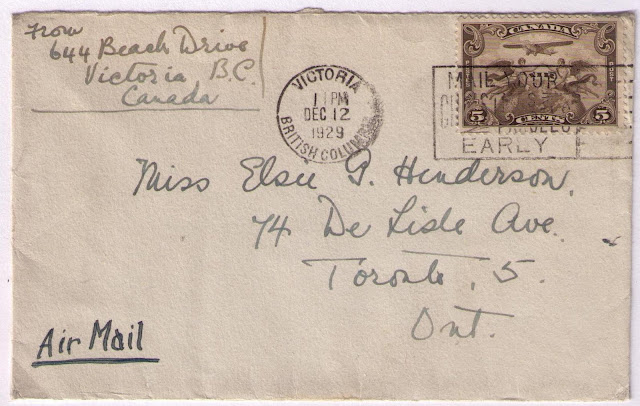 From
644 Beach Drive
Victoria, B.C.
Canada
VICTORIA
11 PM
DEC 12
1929
BRITISH COLUMBIA
MAIL YOUR
EARLY
CANADA
5 CENTS 5
Miss Elsie G. Henderson,
74 De Lisle Ave.
Toronto, 5.
Ont.
Air Mail